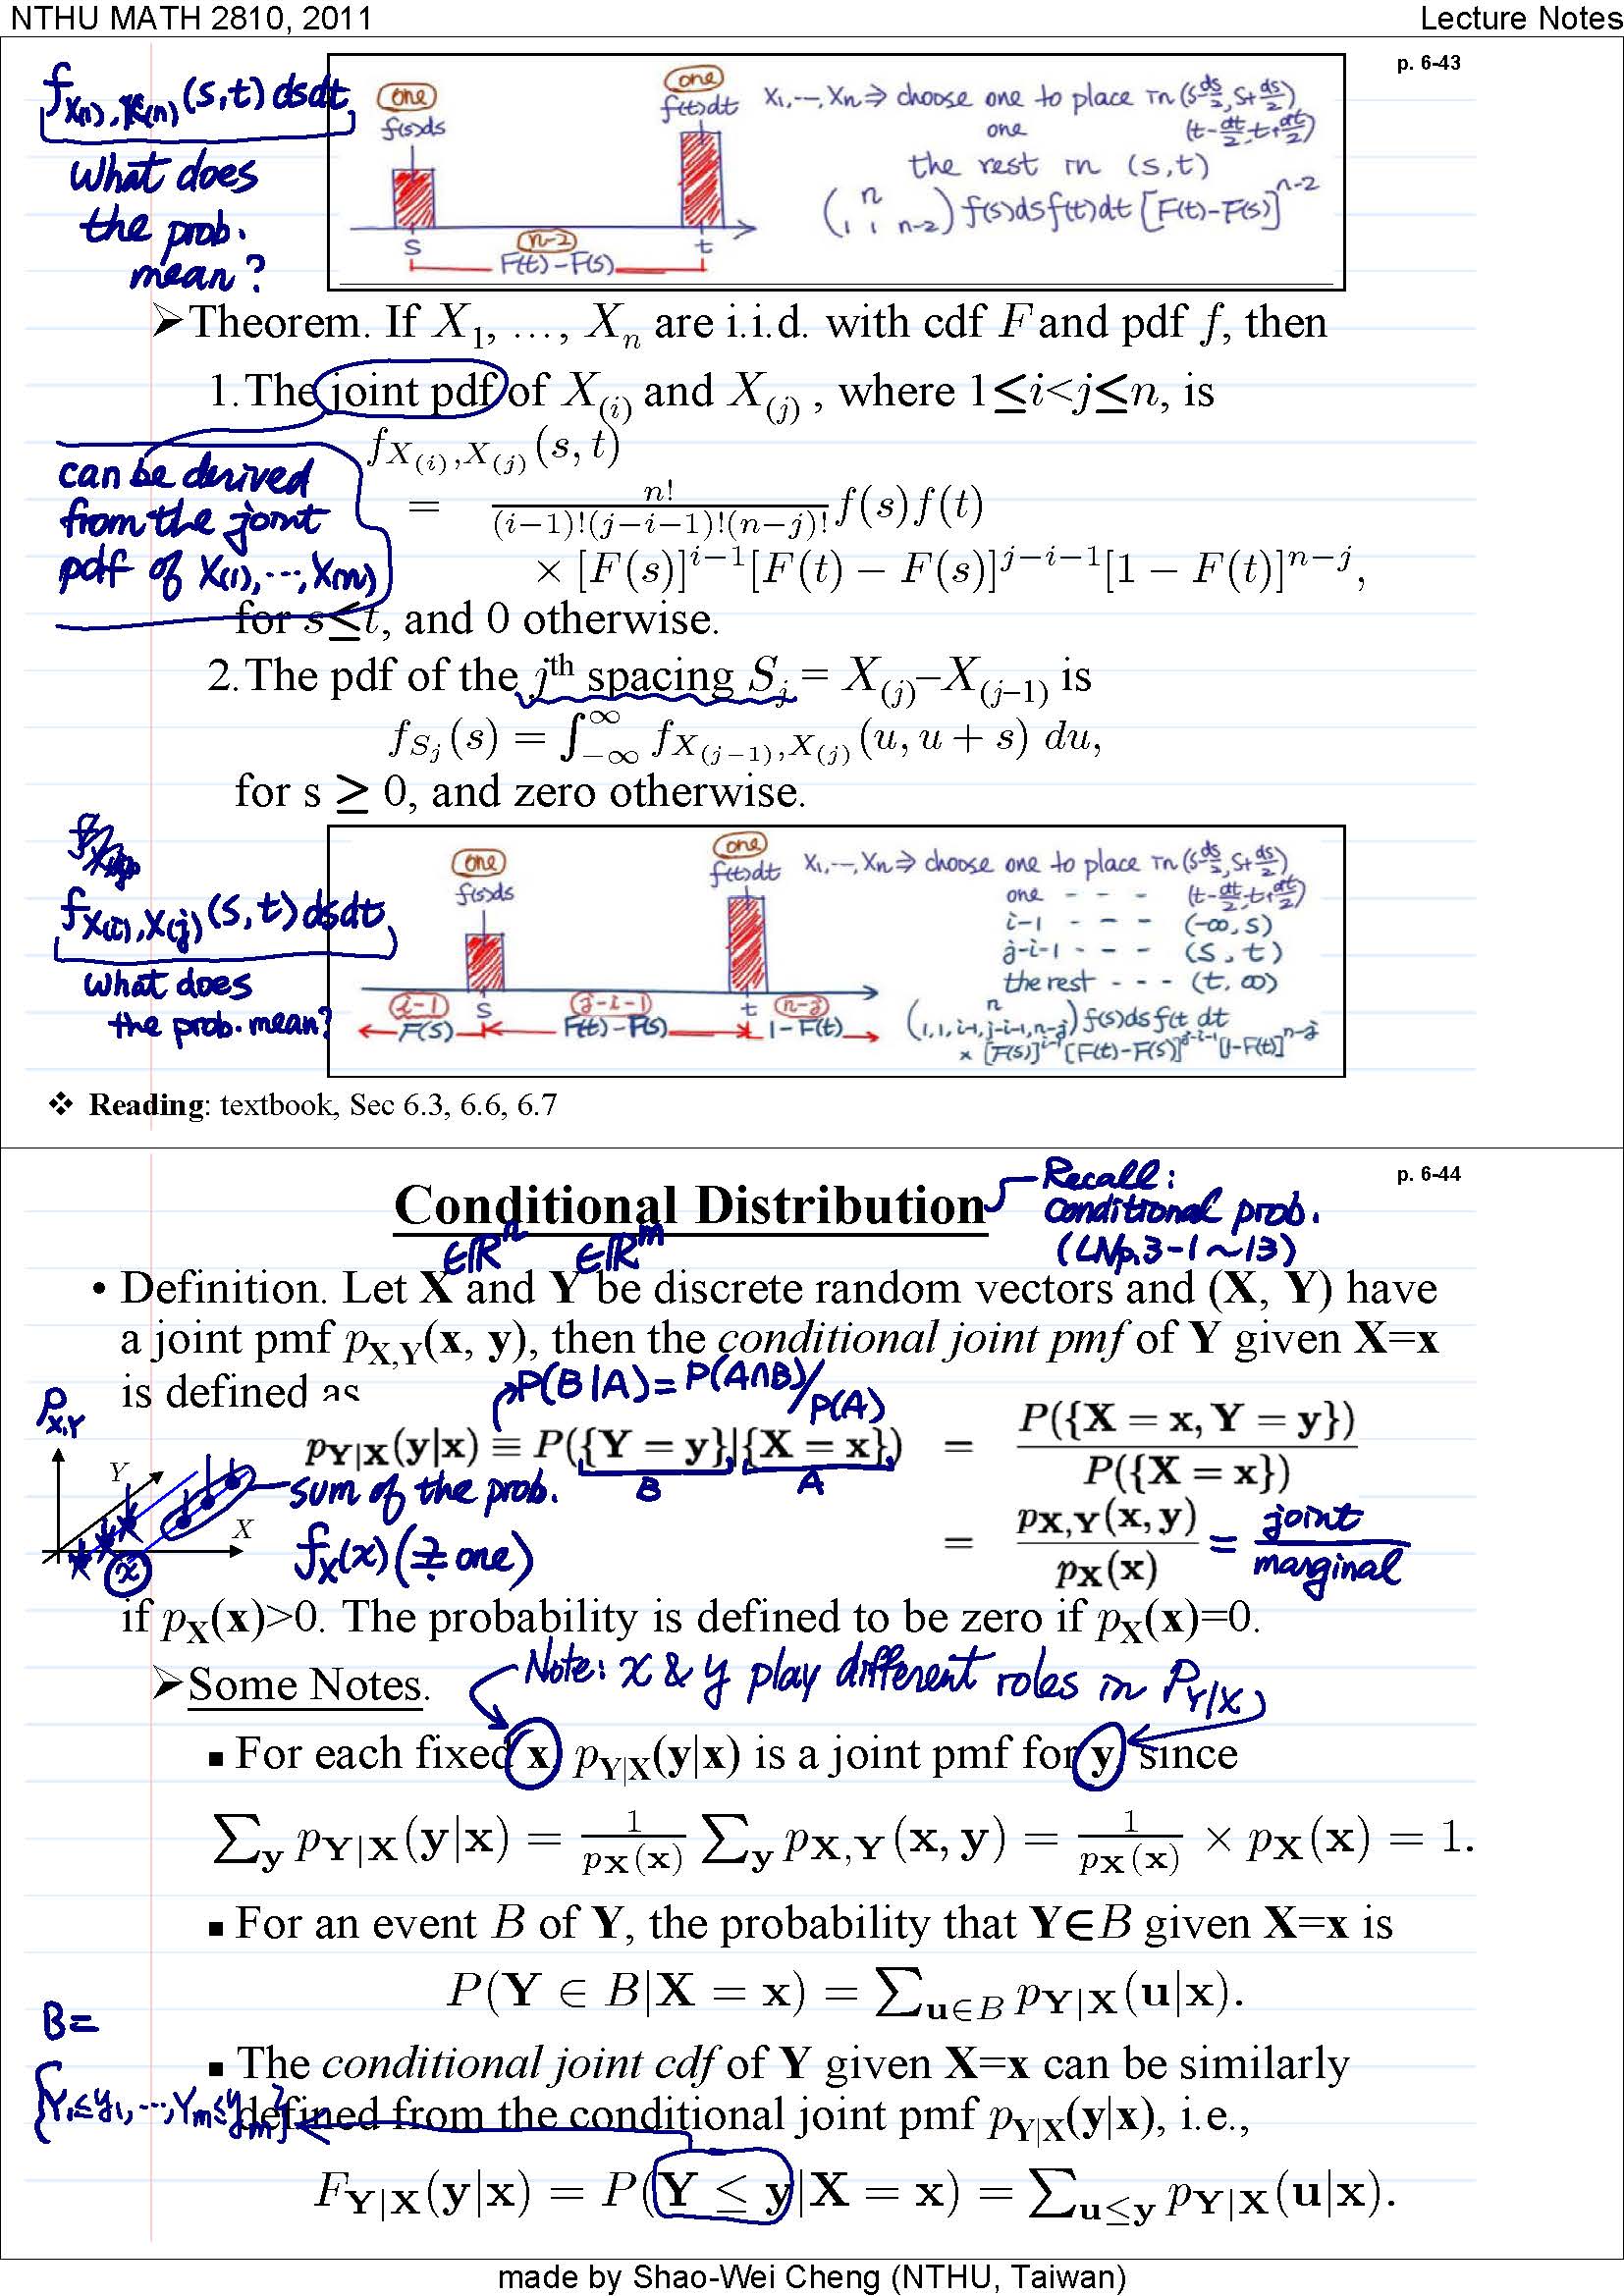 NTHU MATH 2810, 2011 Lecture Notes
p. 6-43
f_{X(1), X(n)}(s,t) dsdt
What does
the prob.
mean?
one one
f(s)ds f(t)dt
X1, --, Xn ⇒ choose one to place in (s-ds/2, s+ds/2)
one (t-dt/2, t+dt/2)
the rest in (s,t)
(n; 1, 1, n-2) f(s)ds f(t)dt [F(t)-F(s)]^{n-2}
s n-2 t
F(t)-F(s)
➢Theorem. If X_1, …, X_n are i.i.d. with cdf F and pdf f, then
1.The joint pdf of X_(i) and X_(j) , where 1≤i<j≤n, is
f_{X_(i),X_(j)}(s, t)
= n!/((i−1)!(j−i−1)!(n−j)!) f(s)f(t)
× [F(s)]^{i−1}[F(t) − F(s)]^{j−i−1}[1 − F(t)]^{n−j},
can be derived
from the joint
pdf of X(1), ..., X(n)
for s≤t, and 0 otherwise.
2.The pdf of the j^th spacing S_j = X_(j)–X_(j–1) is
f_{S_j}(s) = ∫_{−∞}^{∞} f_{X_(j−1),X_(j)}(u, u + s) du,
for s ≥ 0, and zero otherwise.
f_{X(i), X(j)}(s,t) dsdt
What does
the prob. mean?
one one
f(s)ds f(t)dt
X1, --, Xn ⇒ choose one to place in (s-ds/2, s+ds/2)
one - - - (t-dt/2, t+dt/2)
i-1 - - - (-∞, s)
j-i-1 - - - (s, t)
the rest - - - (t, ∞)
(n; 1,1,i-1,j-i-1,n-j) f(s)ds f(t dt
× [F(s)]^{i-1} [F(t)-F(s)]^{j-i-1} [1-F(t)]^{n-j}
i-1 s j-i-1 t n-j
F(s) F(t)-F(s) 1-F(t)
❖ Reading: textbook, Sec 6.3, 6.6, 6.7
p. 6-44
Conditional Distribution
Recall:
conditional prob.
(LNp.3-1~13)
∈R^n ∈R^m
• Definition. Let X and Y be discrete random vectors and (X, Y) have
a joint pmf p_{X,Y}(x, y), then the conditional joint pmf of Y given X=x
is defined as
P(B|A)=P(A∩B)/P(A)
p_{Y|X}(y|x) ≡ P({Y = y}|{X = x}) = P({X = x, Y = y})/P({X = x})
B A
= p_{X,Y}(x, y)/p_X(x) = joint/marginal
P_{X,Y}
Y
X
x
sum of the prob.
f_X(x) (≠ one)
if p_X(x)>0. The probability is defined to be zero if p_X(x)=0.
➢Some Notes.
Note: x & y play different roles in P_{Y|X}
▪ For each fixed x, p_{Y|X}(y|x) is a joint pmf for y, since
∑_y p_{Y|X}(y|x) = 1/p_X(x) ∑_y p_{X,Y}(x, y) = 1/p_X(x) × p_X(x) = 1.
▪ For an event B of Y, the probability that Y∈B given X=x is
P(Y ∈ B|X = x) = ∑_{u∈B} p_{Y|X}(u|x).
B=
{Y1≤y1, ..., Ym≤ym}
▪ The conditional joint cdf of Y given X=x can be similarly
defined from the conditional joint pmf p_{Y|X}(y|x), i.e.,
F_{Y|X}(y|x) = P(Y ≤ y|X = x) = ∑_{u≤y} p_{Y|X}(u|x).
made by Shao-Wei Cheng (NTHU, Taiwan)